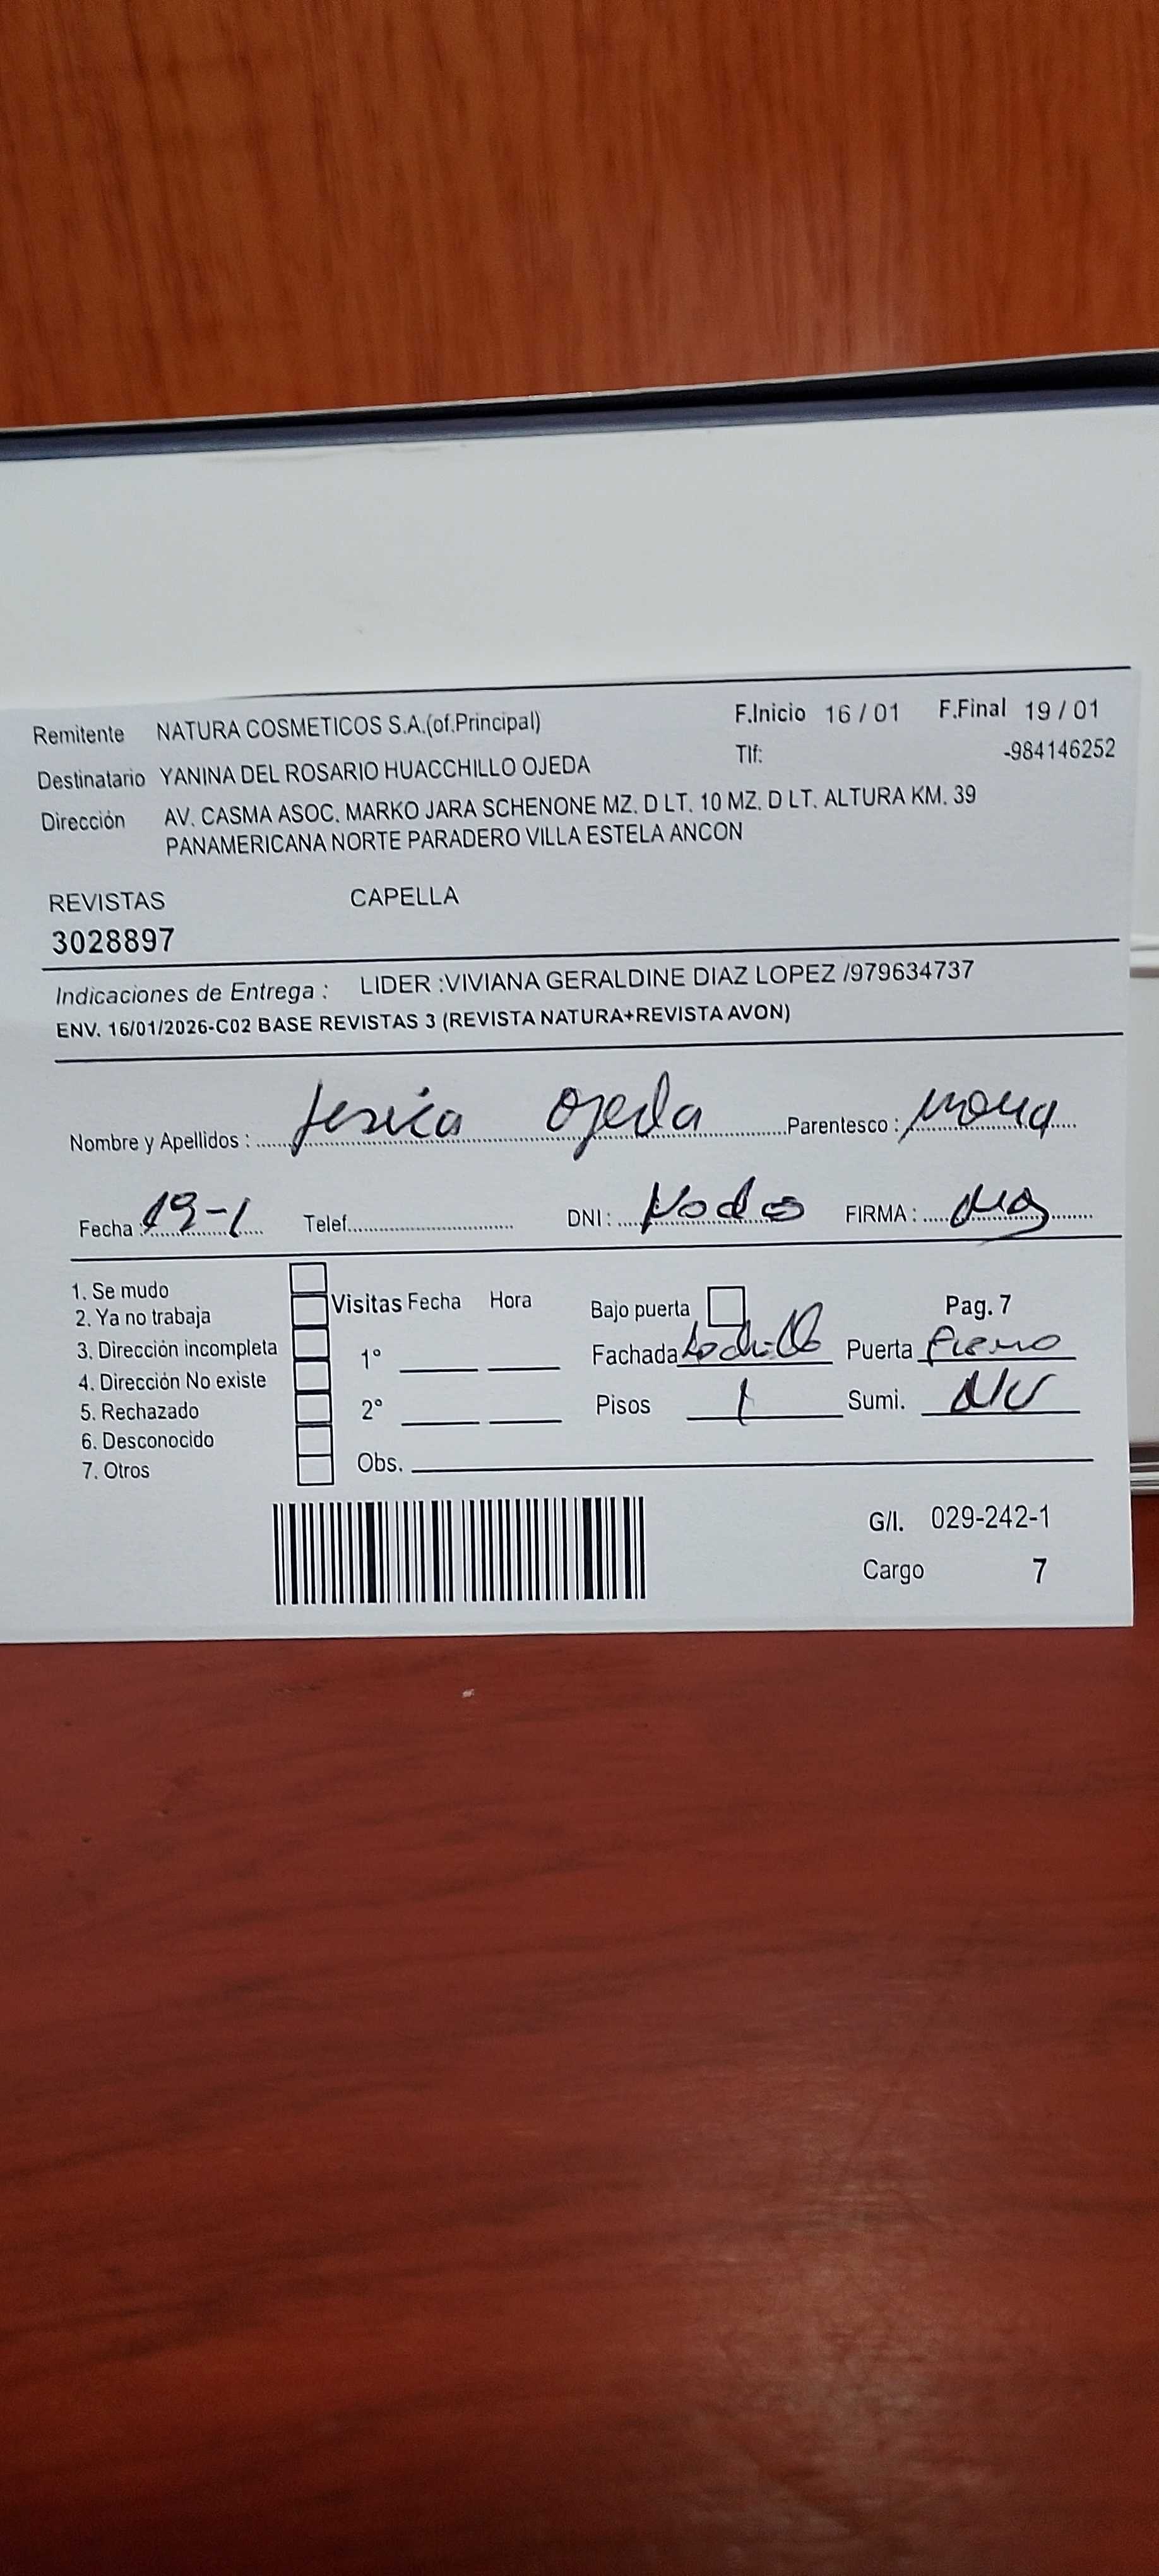 Remitente NATURA COSMETICOS S.A.(of.Principal) F.Inicio 16 / 01 F.Final 19 / 01
Destinatario YANINA DEL ROSARIO HUACCHILLO OJEDA Tlf: -984146252
Dirección AV. CASMA ASOC. MARKO JARA SCHENONE MZ. D LT. 10 MZ. D LT. ALTURA KM. 39
PANAMERICANA NORTE PARADERO VILLA ESTELA ANCON
REVISTAS CAPELLA
3028897
Indicaciones de Entrega : LIDER :VIVIANA GERALDINE DIAZ LOPEZ /979634737
ENV. 16/01/2026-C02 BASE REVISTAS 3 (REVISTA NATURA+REVISTA AVON)
Nombre y Apellidos : Jesica Ojeda Parentesco :
Fecha 19-1 Telef. DNI : FIRMA :
1. Se mudo
2. Ya no trabaja Visitas Fecha Hora Bajo puerta Pag. 7
3. Dirección incompleta 1° Fachada Ladrillo Puerta Fierro
4. Dirección No existe
5. Rechazado 2° Pisos 1 Sumi.
6. Desconocido
7. Otros Obs.
G/I. 029-242-1
Cargo 7